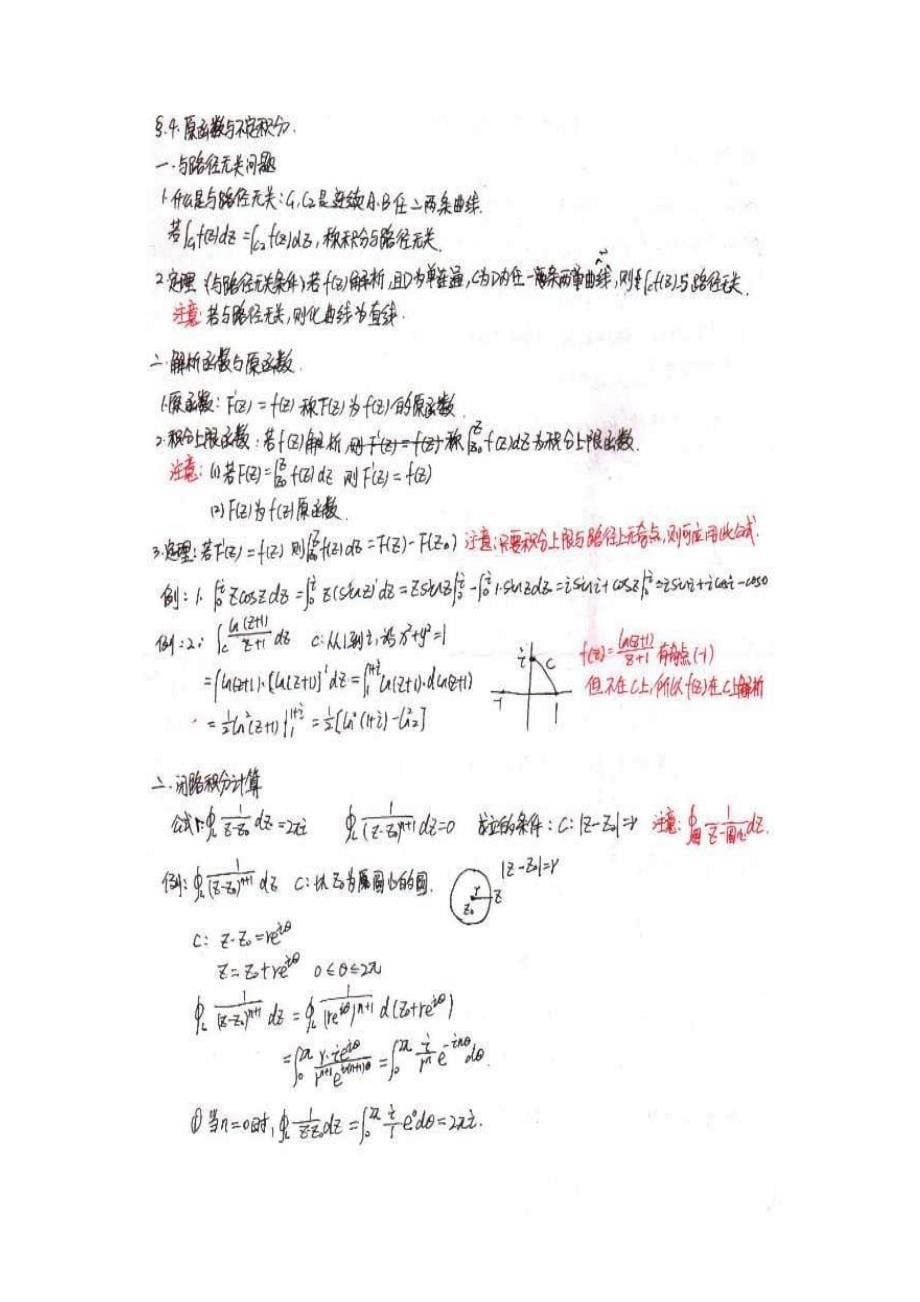 §.4.原函数与不定积分.
一.与路径无关问题
1.什么是与路径无关:C₁,C₂是连续A.B任二两条曲线.
若∫c₁f(z)dz=∫c₂f(z)dz,称积分与路径无关
2.定理:(与路径无关条件)若f(z)解析,且D为单连通,C为D内任一条简单曲线,则∫cf(z)与路径无关.
注意:若与路径无关,则化曲线为直线.
二.解析函数与原函数.
1.原函数:F'(z)=f(z)称F(z)为f(z)的原函数.
2.积分上限函数:若f(z)解析,则F'(z)=f(z)称∫_{z₀}^{z}f(z)dz为积分上限函数.
注意:(1)若F(z)=∫_{z₀}^{z}f(z)dz 则F'(z)=f(z)
(2)F(z)为f(z)原函数.
3.定理:若F'(z)=f(z)则∫_{z₀}^{z}f(z)dz=F(z)-F(z₀) 注意:只要积分上限与路径上无奇点,则可应用此公式.
例:1.∫_0^i zcoszdz=∫_0^i z(sinz)'dz=zsinz|_0^i-∫_0^i 1·sinzdz=isini+cosz|_0^i=isini+icosi-cos0
例:2:∫_C ln(z+1)/(z+1) dz C:从1到i,沿x²+y²=1 f(z)=ln(z+1)/(z+1) 有奇点(-1)
=∫ln(z+1)·[ln(z+1)]'dz=∫_1^{1+i}ln(z+1)·dln(z+1) i C -1 1 但不在C上,所以f(z)在C上解析
=½ln²(z+1)|_1^{1+i}=½[ln²(1+i)-ln²2]
二.闭路积分计算
公式1:∮_C 1/(z-z₀) dz=2πi ∮_C 1/(z-z₀)^{n+1} dz=0 成立的条件:C:|z-z₀|=r 注意:
例:∮_C 1/(z-z₀)^{n+1} dz C:以z₀为圆心的圆. |z-z₀|=r r z₀ z
C: z-z₀=re^{iθ}
z=z₀+re^{iθ} 0≤θ≤2π
∮_C 1/(z-z₀)^{n+1} dz=∮_C 1/(re^{iθ})^{n+1} d(z₀+re^{iθ})
=∫_0^{2π} r·ie^{iθ}/r^{n+1}e^{i(n+1)θ}=∫_0^{2π} i/rⁿ e^{-inθ}dθ
①当n=0时,∮_C 1/(z-z₀)dz=∫_0^{2π} i/1 e⁰dθ=2πi.